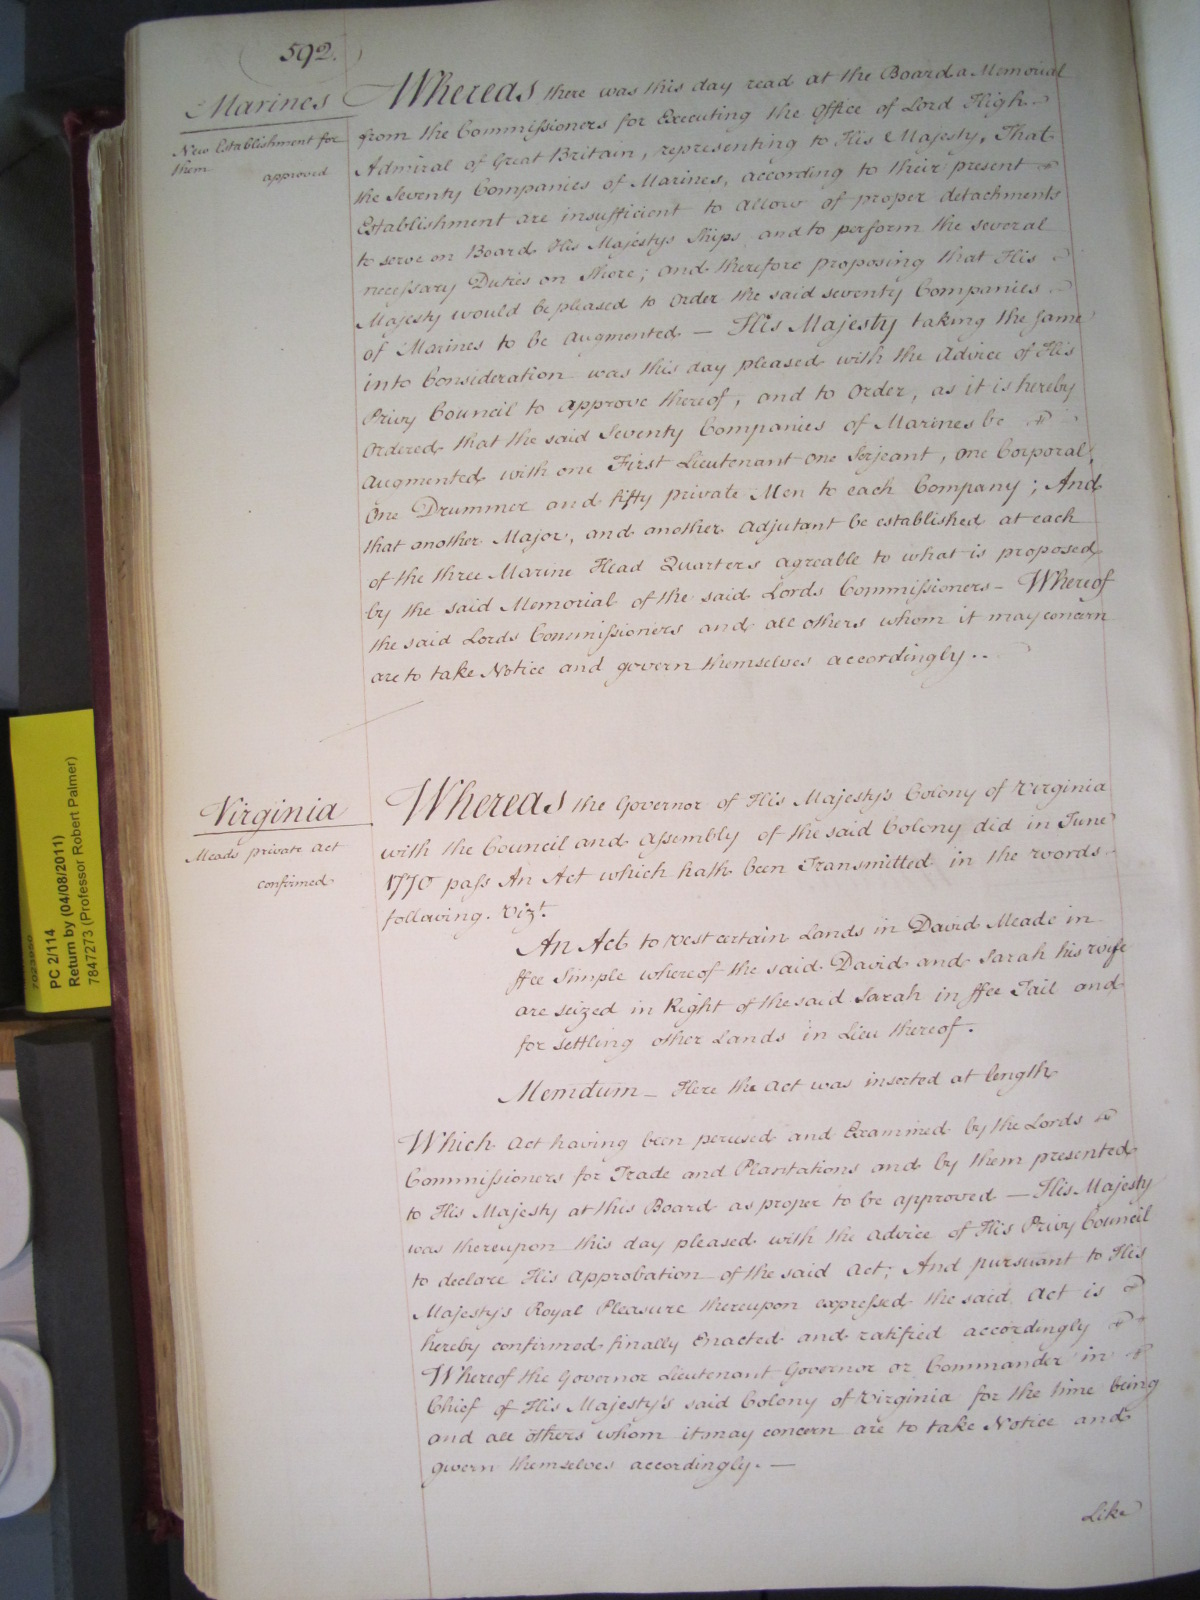 592.
Marines
New Establishment for
them approved
Whereas there was this day read at the Board a Memorial
from the Commissioners for Executing the Office of Lord High
Admiral of Great Britain, representing to His Majesty, That
the Seventy Companies of Marines, according to their present
Establishment are insufficient to allow of proper detachments
to serve on Board His Majestys Ships and to perform the several
necessary Duties on Shore; and therefore proposing that His
Majesty would be pleased to Order the said seventy Companies
of Marines to be augmented — His Majesty taking the same
into Consideration was this day pleased with the Advice of His
Privy Council to approve thereof, and to Order, as it is hereby
Ordered that the said Seventy Companies of Marines be
Augmented with one First Lieutenant one Serjeant, one Corporal,
One Drummer and fifty private Men to each Company; And
that another Major, and another Adjutant be established at each
of the three Marine Head Quarters agreable to what is proposed
by the said Memorial of the said Lords Commissioners — Whereof
the said Lords Commissioners and all others whom it may concern
are to take Notice and govern themselves accordingly..
Virginia
Meads private Act
confirmed
Whereas the Governor of His Majesty's Colony of Virginia
with the Council and Assembly of the said Colony did in June
1770 pass An Act which hath been Transmitted in the words
following. Vizt.
An Act to vest certain Lands in David Meade in
ffee Simple whereof the said David and Sarah his wife
are seized in Right of the said Sarah in ffee Tail and
for settling other Lands in Lieu thereof.
Memdum — Here the Act was inserted at length
Which Act having been perused and Examined by the Lords
Commissioners for Trade and Plantations and by them presented
to His Majesty at this Board as proper to be approved — His Majesty
was thereupon this day pleased with the Advice of His Privy Council
to declare His Approbation of the said Act; And pursuant to His
Majesty's Royal Pleasure thereupon expressed the said Act is
hereby confirmed finally Enacted and ratified accordingly
Whereof the Governor Lieutenant Governor or Commander in
Chief of His Majesty's said Colony of Virginia for the time being
and all others whom it may concern are to take Notice and
govern themselves accordingly. —
Like
PC 2/114
Return by (04/08/2011)
7847273 (Professor Robert Palmer)